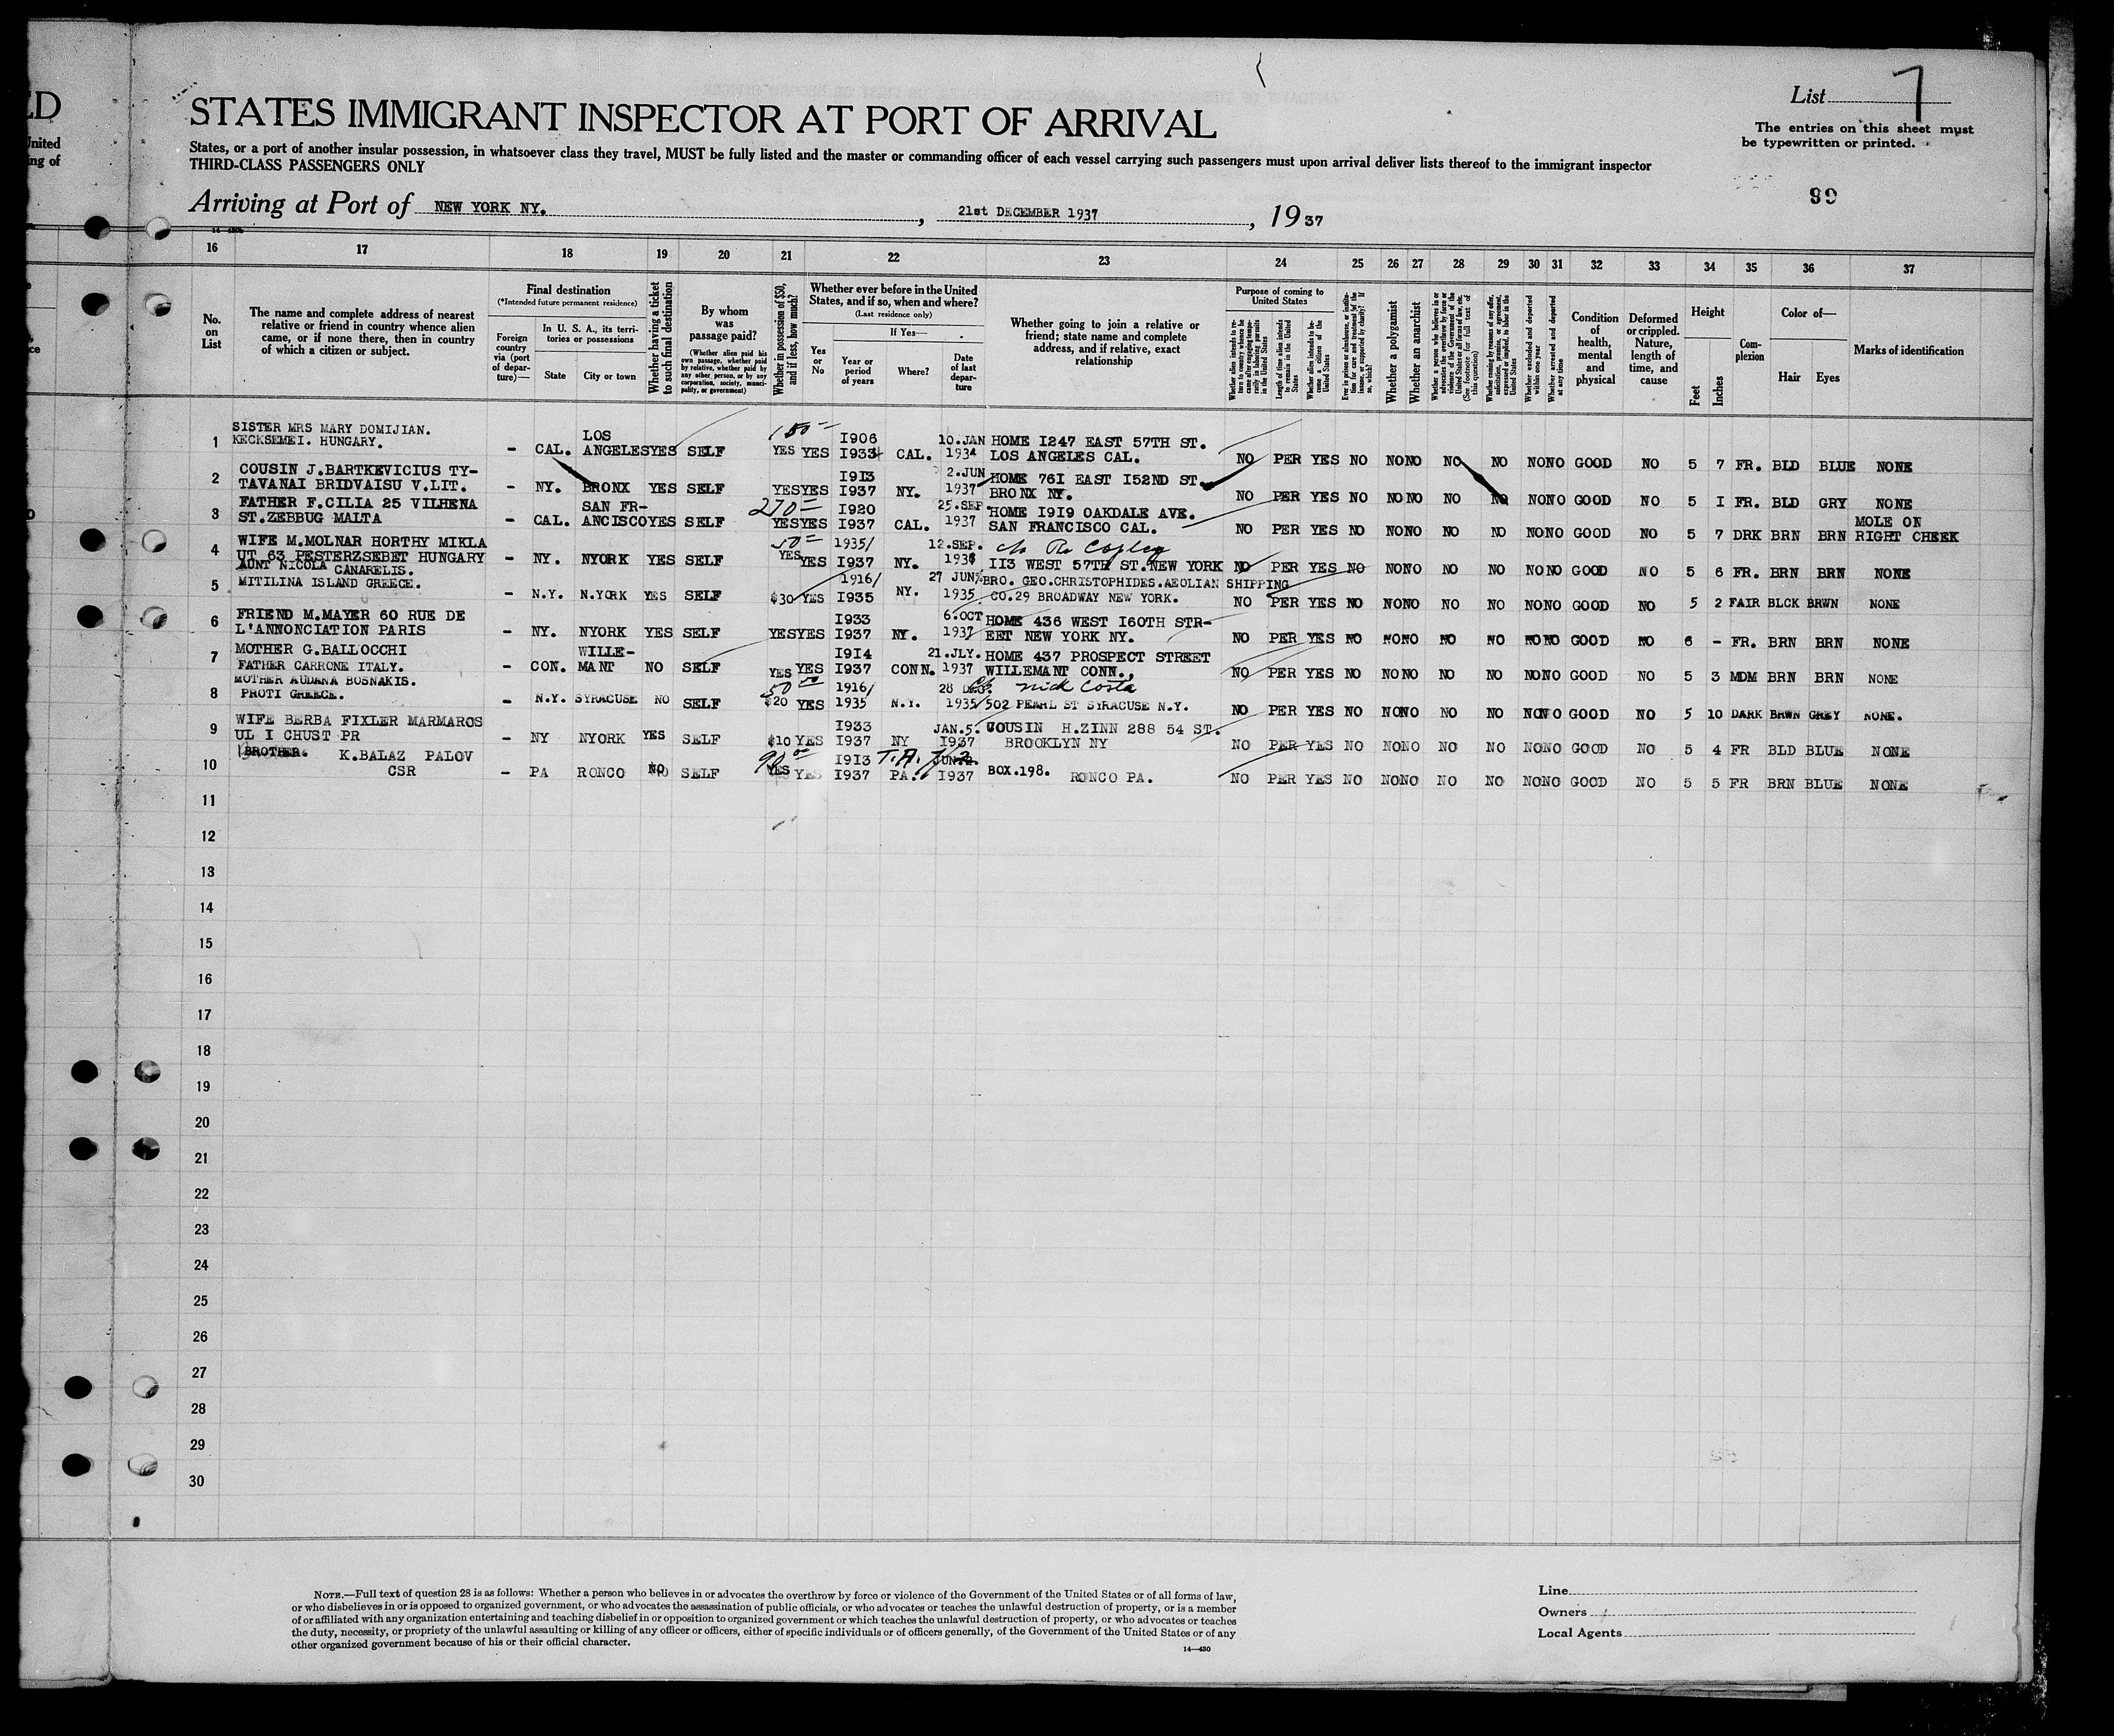 ED
United
ing of
List 7
STATES IMMIGRANT INSPECTOR AT PORT OF ARRIVAL
The entries on this sheet must
be typewritten or printed.
States, or a port of another insular possession, in whatsoever class they travel, MUST be fully listed and the master or commanding officer of each vessel carrying such passengers must upon arrival deliver lists thereof to the immigrant inspector
THIRD-CLASS PASSENGERS ONLY
89
Arriving at Port of NEW YORK NY. , 21st DECEMBER 1937 , 19 37
16 17 18 19 20 21 22 23 24 25 26 27 28 29 30 31 32 33 34 35 36 37
No. on List
The name and complete address of nearest
relative or friend in country whence alien
came, or if none there, then in country
of which a citizen or subject.
Final destination
(*Intended future permanent residence)
Foreign country via (port of departure)—
In U. S. A., its territories or possessions
State City or town
Whether having a ticket to such final destination
By whom was passage paid?
(Whether alien paid his own passage, whether paid by relative, whether paid by any other person, or by any corporation, society, municipality, or government)
Whether in possession of $50, and if less, how much?
Whether ever before in the United
States, and if so, when and where?
(Last residence only)
Yes or No
If Yes—
Year or period of years
Where?
Date of last departure
Whether going to join a relative or
friend; state name and complete
address, and if relative, exact
relationship
Purpose of coming to United States
Whether alien intends to return to country whence he came after engaging temporarily in laboring pursuits in the United States
Length of time alien intends to remain in the United States
Whether alien intends to become a citizen of the United States
Whether a polygamist
Whether an anarchist
(See footnote for full text of this question)
Whether arrested and deported at any time
Condition of health, mental and physical
Deformed or crippled. Nature, length of time, and cause
Height
Feet Inches
Complexion
Color of—
Hair Eyes
Marks of identification
1 SISTER MRS MARY DOMIJIAN. KECKSEMEI. HUNGARY. - CAL. LOS ANGELES YES SELF 150= YES YES 1906 1934 CAL. 10.JAN 1934 HOME 1247 EAST 57TH ST. LOS ANGELES CAL. NO PER YES NO NO NO NO NO NO NO GOOD NO 5 7 FR. BLD BLUE NONE
2 COUSIN J.BARTKEVICIUS TY- TAVANAI BRIDVAISU V.LIT. - NY. BRONX YES SELF YES YES 1913 1937 NY. 2.JUN 1937 HOME 761 EAST 152ND ST. BRONX NY. NO PER YES NO NO NO NO NO NO NO GOOD NO 5 1 FR. BLD GRY NONE
3 FATHER F.CILIA 25 VILHENA ST.ZEBBUG MALTA - CAL. SAN FR- ANCISCO YES SELF 270= YES YES 1920 1937 CAL. 25.SEP. 1937 HOME 1919 OAKDALE AVE. SAN FRANCISCO CAL. NO PER YES NO NO NO NO NO NO NO GOOD NO 5 7 DRK BRN BRN MOLE ON RIGHT CHEEK
4 WIFE M.MOLNAR HORTHY MIKLA UT 63 PESTERZSEBET HUNGARY - NY. NYORK YES SELF 50= YES YES 1935/ 1937 NY. 12.SEP. c/o 113 WEST 57TH ST.NEW YORK NO PER YES NO NO NO NO NO NO NO GOOD NO 5 6 FR. BRN BRN NONE
5 AUNT NICOLA CANARELIS. MITILINA ISLAND GREECE. - N.Y. N.YORK YES SELF $30 YES 1916/ 1935 NY. 27 JUN/ 1935 BRO. GEO.CHRISTOPHIDES.AEOLIAN SHIPPING CO.29 BROADWAY NEW YORK. NO PER YES NO NO NO NO NO NO NO GOOD NO 5 2 FAIR BLCK BRWN NONE
6 FRIEND M.MAYER 60 RUE DE L'ANNONCIATION PARIS - NY. NYORK YES SELF YES YES 1933 1937 NY. 6.OCT 1937 HOME 436 WEST 160TH STR- EET NEW YORK NY. NO PER YES NO NO NO NO NO NO NO GOOD NO 6 - FR. BRN BRN NONE
7 MOTHER G.BALLOCCHI FATHER CARRONE ITALY. - CON. WILLE- MANT NO SELF YES YES 1914 1937 CONN. 21.JLY. 1937 HOME 437 PROSPECT STREET WILLEMANT CONN., NO PER YES NO NO NO NO NO NO NO GOOD NO 5 3 MDM BRN BRN NONE
8 MOTHER AUDANA BOSNAKIS. PROTI GREECE. - N.Y. SYRACUSE NO SELF 50 00 $20 YES 1916/ 1935 N.Y. 28 1935/ c/o Nick Costa 502 PEARL ST SYRACUSE N.Y. NO PER YES NO NO NO NO NO NO NO GOOD NO 5 10 DARK BRWN GREY NONE.
9 WIFE BERBA FIXLER MARMAROS UL 1 CHUST PR - NY NYORK YES SELF $10 YES 1933 1937 NY JAN.5. 1937 COUSIN H.ZINN 288 54 ST. BROOKLYN NY NO PER YES NO NO NO NO NO NO NO GOOD NO 5 4 FR BLD BLUE NONE
10 BROTHER. K.BALAZ PALOV CSR - PA RONCO NO SELF 90 00 YES YES 1913 1937 PA. 1937 BOX.198. RONCO PA. NO PER YES NO NO NO NO NO NO NO GOOD NO 5 5 FR BRN BLUE NONE
11
12
13
14
15
16
17
18
19
20
21
22
23
24
25
26
27
28
29
30
NOTE.—Full text of question 28 is as follows: Whether a person who believes in or advocates the overthrow by force or violence of the Government of the United States or of all forms of law,
or who disbelieves in or is opposed to organized government, or who advocates the assassination of public officials, or who advocates or teaches the unlawful destruction of property, or is a member
of or affiliated with any organization entertaining and teaching disbelief in or opposition to organized government or which teaches the unlawful destruction of property, or who advocates or teaches
the duty, necessity, or propriety of the unlawful assaulting or killing of any officer or officers, either of specific individuals or of officers generally, of the Government of the United States or of any
other organized government because of his or their official character.
14—430
Line
Owners
Local Agents